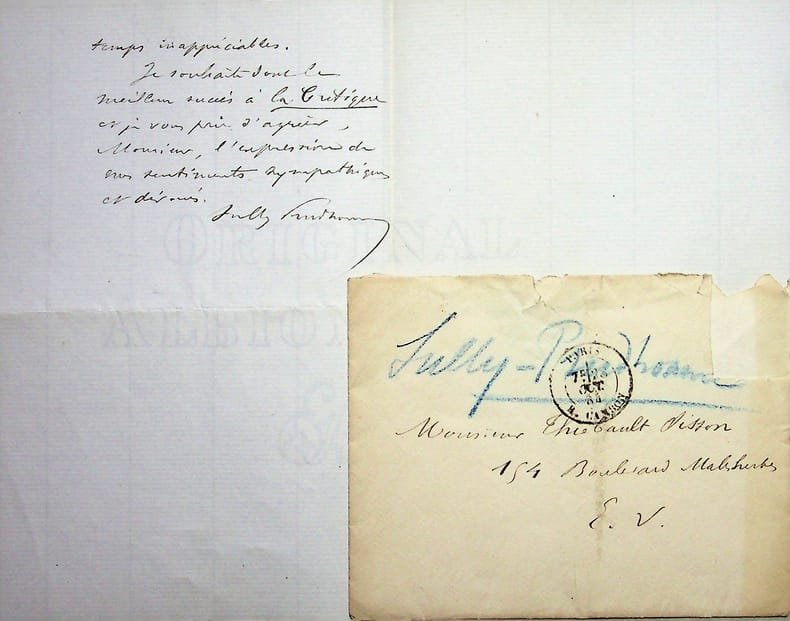 temps inappréciables.
Je souhaite donc le
meilleur succès à la Critique
et je vous prie d'agréer,
Monsieur, l'expression de
mes sentiments sympathiques
et dévoués.
Sully Prudhomme
ORIGINAL
Sully-Prudhomme
PARIS
OCT
84
R. CAMBON
Monsieur Thiébault Sisson
154 Boulevard Malesherbes
E. V.